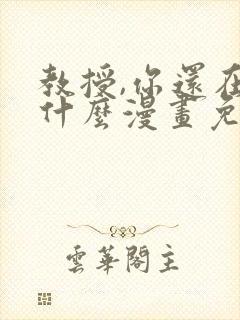 教授,你還在
什麼漫畫免
雲華閣主